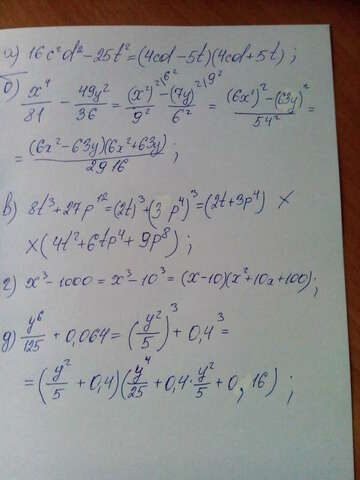 а) 16c²d² − 25t² = (4cd − 5t)(4cd + 5t);
б) x⁴/81 − 49y²/36 = (x²)²\6²/9² − (7y)²\9²/6² = ((6x²)² − (63y)²)/54² =
= (6x² − 63y)(6x² + 63y)/2916;
в) 8t³ + 27p¹² = (2t)³ + (3p⁴)³ = (2t + 3p⁴) ×
× (4t² + 6tp⁴ + 9p⁸);
г) x³ − 1000 = x³ − 10³ = (x − 10)(x² + 10x + 100);
д) y⁶/125 + 0,064 = (y²/5)³ + 0,4³ =
= (y²/5 + 0,4)(y⁴/25 + 0,4·y²/5 + 0,16);